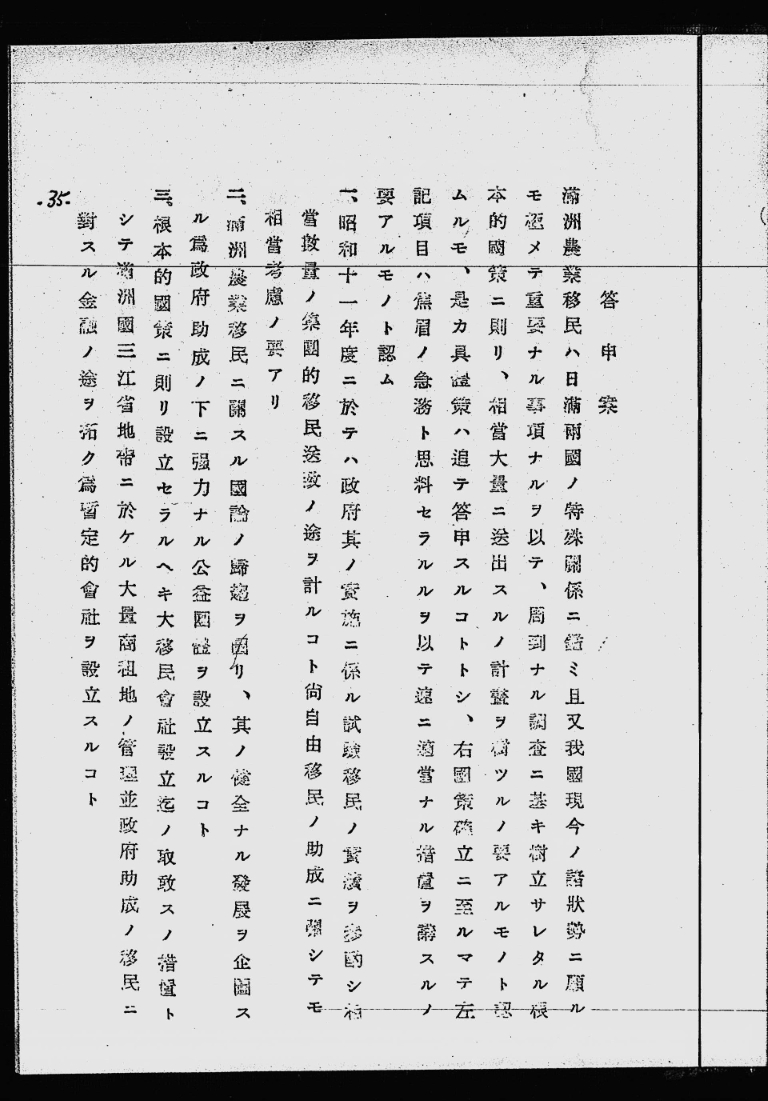 答申案
滿洲農業移民ハ日滿兩國ノ特殊關係ニ鑑ミ且又我國現今ノ諸狀勢ニ顧ル
モ極メテ重要ナル事項ナルヲ以テ、周到ナル調査ニ基キ樹立サレタル根
本的國策ニ則リ、相當大量ニ送出スルノ計畫ヲ樹ツルノ要アルモノト認
ムルモ、是カ具體策ハ追テ答申スルコトトシ、右國策確立ニ至ルマテ左
記項目ハ焦眉ノ急務ト思料セラルルヲ以テ速ニ適當ナル措置ヲ講スルノ
要アルモノト認ム
一、昭和十一年度ニ於テハ政府其ノ實施ニ係ル試驗移民ノ實績ヲ參酌シ相
當數量ノ集團的移民送致ノ途ヲ計ルコト尚自由移民ノ助成ニ關シテモ
相當考慮ノ要アリ
二、滿洲農業移民ニ關スル國論ノ歸趨ヲ圖リ、其ノ健全ナル發展ヲ企圖ス
ル爲政府助成ノ下ニ强力ナル公益團體ヲ設立スルコト
三、根本的國策ニ則リ設立セラルヘキ大移民會社設立迄ノ取敢スノ措置ト
シテ滿洲國三江省地帶ニ於ケル大量商租地ノ管理並政府助成ノ移民ニ
對スル金融ノ途ヲ拓ク爲暫定的會社ヲ設立スルコト
.35.